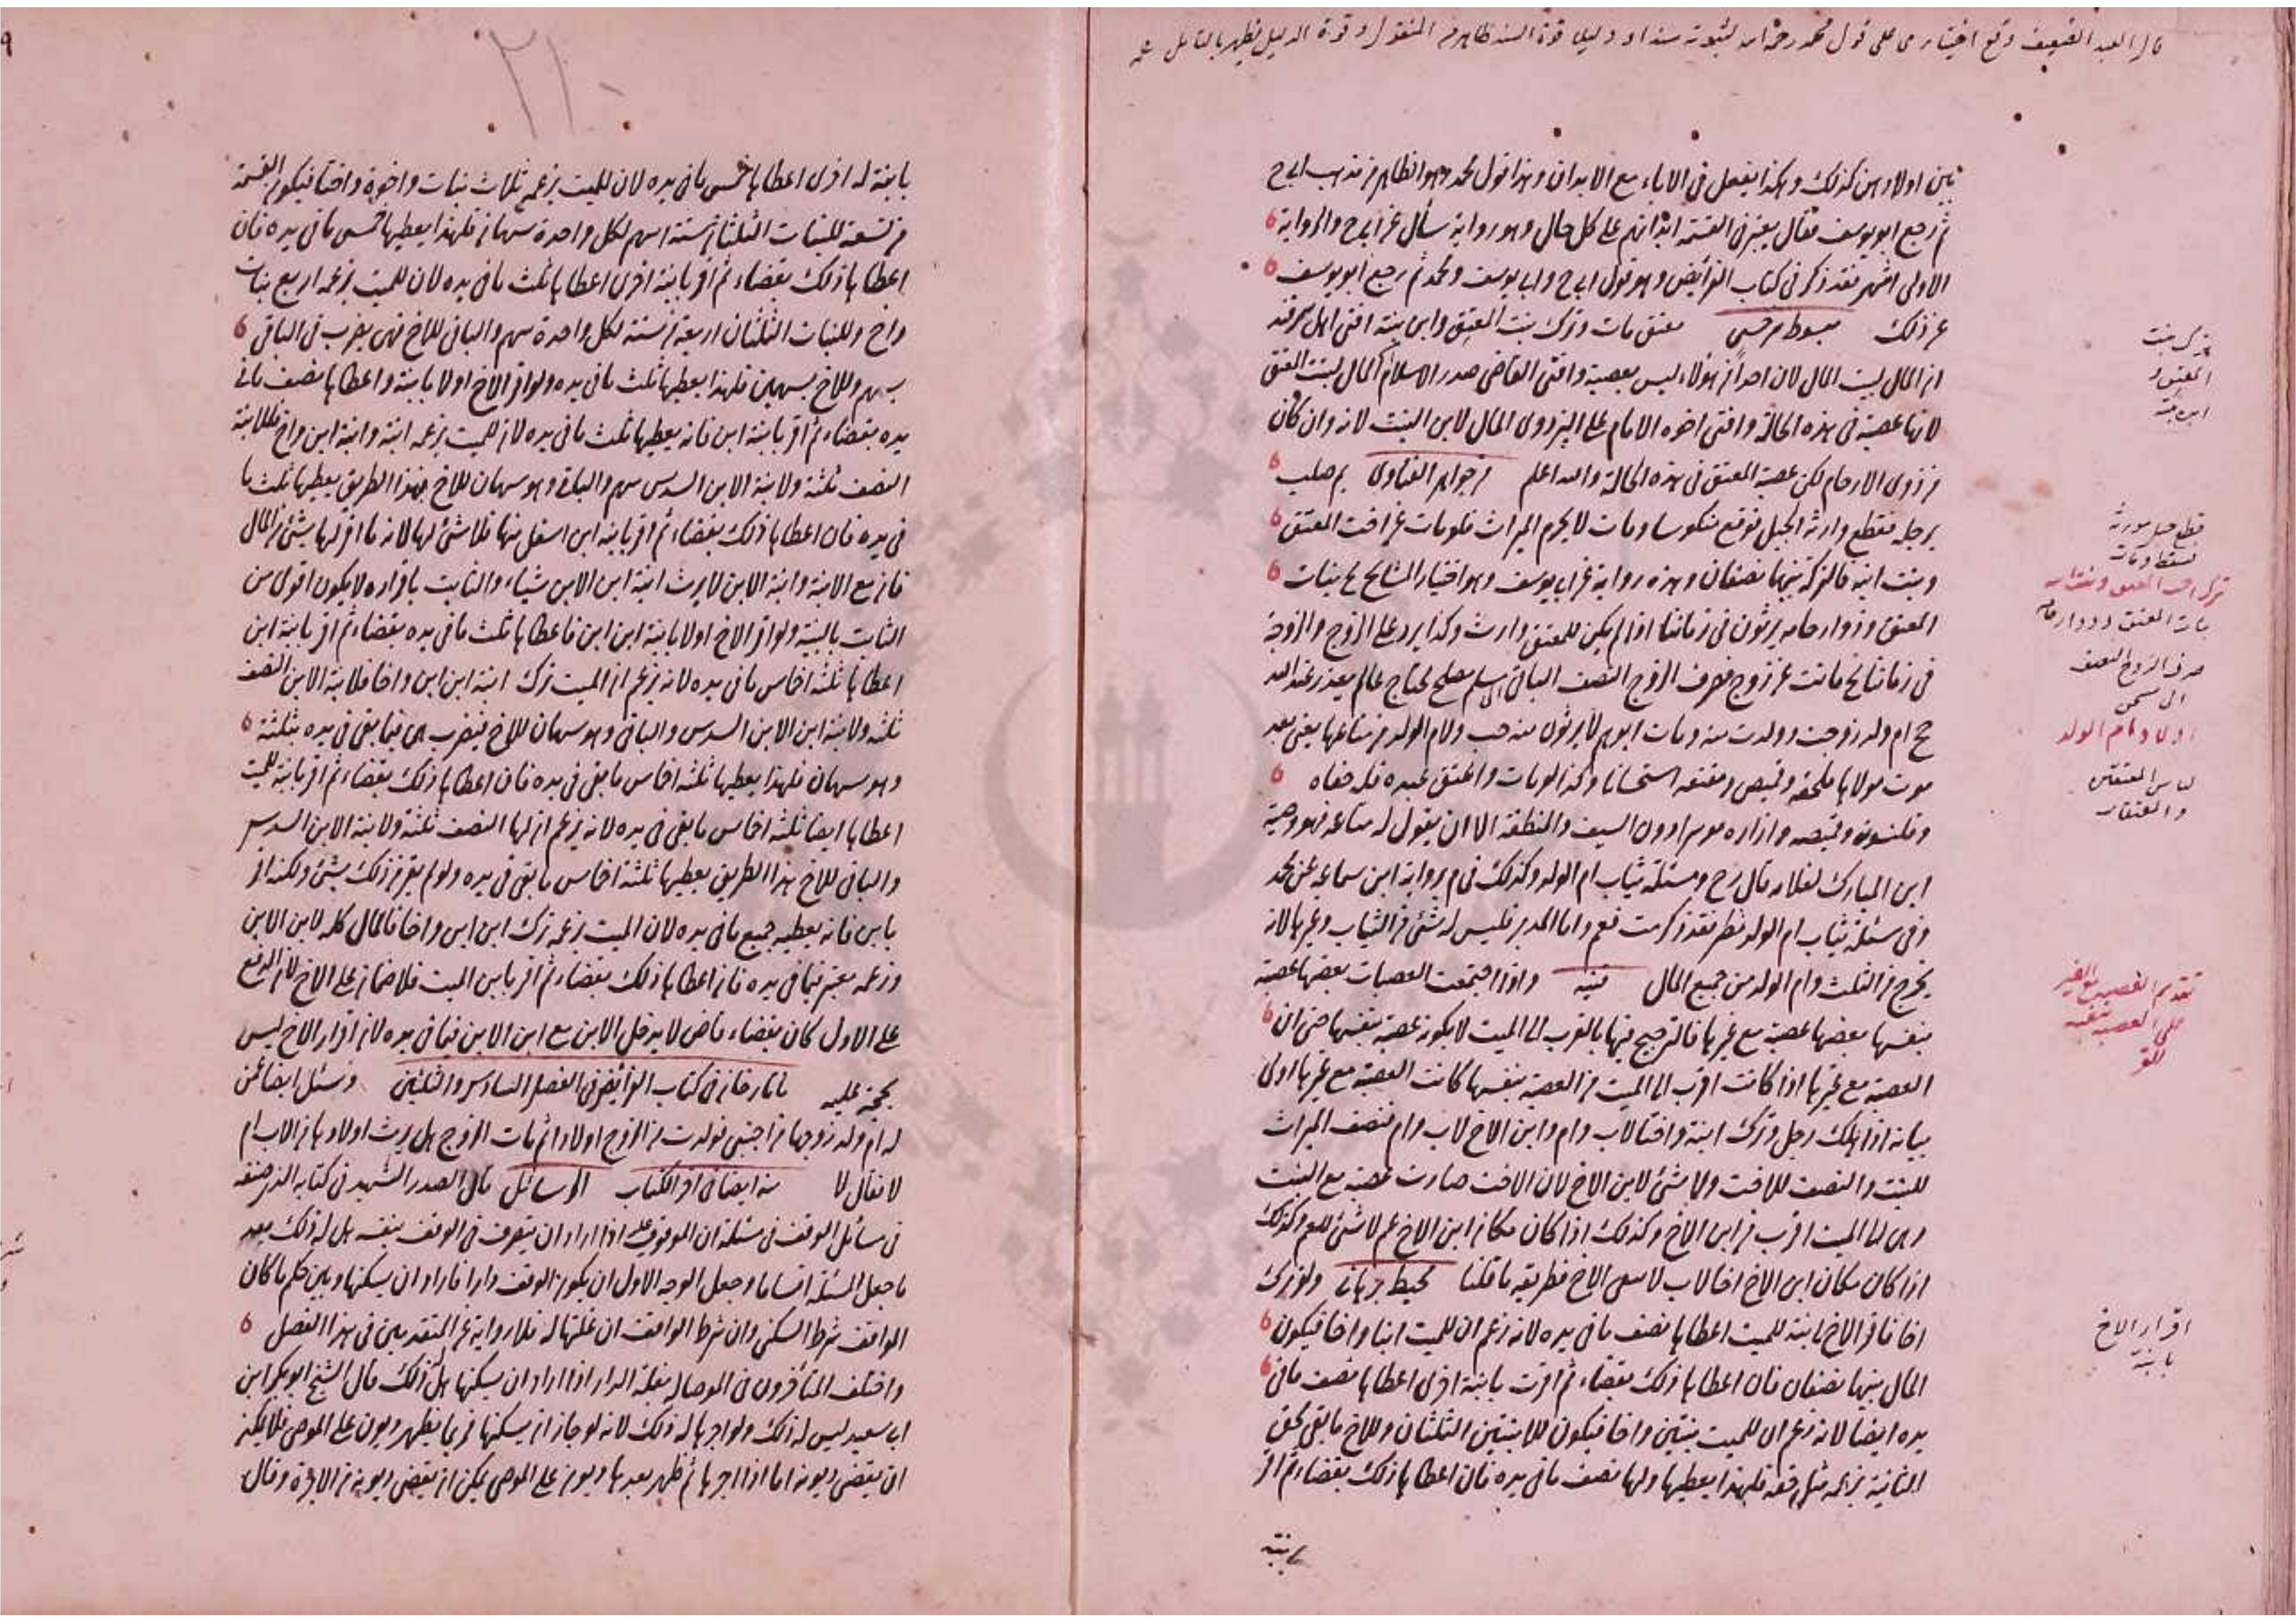 قال العبد الضعيف وقع اختياري على قول محمد رحمه الله لثبوته سندا ودليلا قوة السند ظاهر من المنقول وقوة الدليل يظهر بالتأمل
بين اولادهن كذلك وهكذا يفعل في الاباء مع الابدان وهذا قول محمد وهو الظاهر من مذهب ابي ح
ثم رجع ابو يوسف فقال يعتبر في القسمة ابدانهم على كل حال وهو رواية عن ابي ح والرواية
الاولى اشهر فقد ذكر في كتاب الفرائض وهو قول ابي ح وابي يوسف ومحمد ثم رجع ابو يوسف
عن ذلك مبسوط سرخسي معتق مات وترك بنت المعتق وابن بنته افتى اهل سمرقند
ان المال لبيت المال لان احدا من هؤلاء ليس بعصبة وافتى القاضي صدر الاسلام المال لبنت المعتق
لانها عصبة في هذه الحالة وافتى اخوه الامام علي البزدوي المال لابن البنت لانه وان كان
من ذوي الارحام لكن عصبة المعتق في هذه الحالة والله اعلم من جواهر الفتاوى صلب
برجله فقطع وارثه الحبل فوقع منكوسا ومات لا يحرم الميراث فلو مات عن اخت المعتق
وبنت ابنه فالتركة بينهما نصفان وهذه رواية عن ابي يوسف وهو اختيار المشايخ بنات
المعتق وذو ارحامه يرثون في زماننا اذا لم يكن للمعتق وارث وكذا يرد على الزوج والزوجة
في زماننا ماتت عن زوج فصرف الزوج النصف الباقي الى مسلم مصلح محتاج عالم يعذر عند الله
ام ولد زوجت وولدت منه ومات ابوهم لا يرثون منه ولام الولد من متاعها يعني بعد
موت مولاها ملحفة وقميص ومقنعة استحسانا وكذا لو مات واعتق عبده فله خفاه
وقلنسوته وقميصه وازاره وسراويله دون السيف والمنطقة الا ان يقول له متاعه فهو وصية
ابن المبارك لغلامه قال رح ومسئلة ثياب ام الولد وكذلك في رواية ابن سماعة عن محمد
وفي مسئلة ثياب ام الولد نظر فقد ذكرت واما المدبر فليس له شئ من الثياب وغيرها لانه
يخرج من الثلث وام الولد من جميع المال قنية واذا اجتمعت العصبات بعضها عصبة
بنفسها بعضها عصبة مع غيرها فالترجيح فيها بالقرب الى الميت لا بكونه عصبة بنفسها حتى ان
العصبة مع غيرها اذا كانت اقرب الى الميت من العصبة بنفسها كانت العصبة مع غيرها اولى
بيانه اذا هلك رجل وترك ابنة واختا لاب وام وابن الاخ لاب وام فنصف الميراث
للبنت والنصف للاخت ولا شئ لابن الاخ لان الاخت صارت عصبة مع البنت
وهي الى الميت اقرب من ابن الاخ وكذلك اذا كان مكان ابن الاخ عم لا شئ للعم وكذلك
اذا كان مكان ابن الاخ اخا لاب لا شئ للاخ فطريقه ما قلنا محيط برهاني ولو ترك
اخا فاقر الاخ بابنة للميت اعطاها نصف ما في يده لانه زعم ان للميت ابنة واخا فيكون
المال بينهما نصفان فان اعطاها ذلك بقضاء ثم اقرت بابنة اخرى اعطاها نصف ما في
يده ايضا لانه زعم ان للميت بنتين واخا فيكون للابنتين الثلثان وللاخ ما بقي بحق
الثانية بزعمه مثل حقه فلهذا يعطيها ولها نصف ما في يده فان اعطاها ذلك بقضاء ثم اقر
بابنة
ترك بنت
المعتق و
ابن بنته
قطع حبل مورثه
فسقط ومات
ترك اخت المعتق وبنت ابنه
بنات المعتق وذو ارحامه
صرف الزوج النصف
الى مستحق
اولاد ام الولد
لباس المعتقين
والمعتقات
تقديم العصبة مع الغير
على العصبة بنفسه
اقرار الاخ
بابنة
٢١٠
بابنة له اخرى اعطاها خمس ما في يده لان للميت بزعمه ثلاث بنات واخوة واختا فيكون القسمة
من تسعة للبنات الثلثان ستة اسهم لكل واحدة سهمان فلهذا يعطيها خمس ما في يده فان
اعطاها ذلك بقضاء ثم اقر بابنة اخرى اعطاها ثلث ما في يده لان للميت بزعمه اربع بنات
واخ وللبنات الثلثان اربعة من ستة لكل واحدة سهم والباقي للاخ فهي يضرب في الباقي
بسهم وللاخ بسهمين فلهذا يعطيها ثلث ما في يده ولو اقر الاخ اولا بابنة واعطاها نصف ما في
يده بقضاء ثم اقر بابنة ابن فانه يعطيها ثلث ما في يده لان للميت بزعمه ابنة وابنة ابن واخ فللابنة
النصف ثلثة ولابنة الابن السدس سهم والباقي وهو سهمان للاخ فبهذا الطريق يعطيها ثلث ما
في يده فان اعطاها ذلك بقضاء ثم اقر بابنة ابن اسفل منها فلا شئ لها لانه ما اقر لها بشئ من المال
فان مع الابنة وابنة الابن لا يرث ابنة ابن الابن شيئا والثابت باقراره لا يكون اقوى من
الثابت بالبينة ولو اقر الاخ اولا بابنة ابن ابن فاعطاها ثلث ما في يده بقضاء ثم اقر بابنة ابن
اعطاها ثلثة اخماس ما في يده لانه زعم ان الميت ترك ابنة ابن ابن واخا فلابنة الابن النصف
ثلثة ولابنة ابن الابن السدس والباقي وهو سهمان للاخ فيضرب هي فيما بقي في يده بثلثة
وهو سهمان فلهذا يعطيها ثلثة اخماس ما بقي في يده فان اعطاها ذلك بقضاء ثم اقر بابنة للميت
اعطاها ايضا ثلثة اخماس ما بقي في يده لانه زعم ان لها النصف ثلثة ولابنة الابن السدس
والباقي للاخ بهذا الطريق يعطيها ثلثة اخماس ما بقي في يده ولو لم يقر من ذلك بشئ ولكنه اقر
بابن فانه يعطيه جميع ما في يده لان الميت بزعمه ترك ابن ابن واخا فالمال كله لابن الابن
وزعمه معتبر فيما في يده فان اعطاها ذلك بقضاء ثم اقر بابن الميت فلا ضمان على الاخ لان الدفع
على الاول كان بقضاء قاض لا يدخل الابن مع ابن الابن فيما في يده لان اقرار الاخ ليس
بحجة عليه تاتارخاني في كتاب الفرائض في الفصل السادس والثلثين وسئل ايضا عن
له ام ولد زوجها من اجنبي فولدت من الزوج اولادا ثم مات الزوج هل يرث اولادها من الاب ام
لا فقال لا منه ايضا في اخر الكتاب الرسائل قال الصدر الشهيد في كتابه الذي صنفه
في مسائل الوقف في مسئلة ان الموقوف عليه اذا اراد ان يتصرف في الوقف بنفسه هل له ذلك بعد
ما جعل المسئلة اقساما وجعل الوجه الاول ان يكون الوقف دارا فاراد ان يسكنها وبين حكم ما كان
الواقف شرط السكنى وان شرط الواقف ان غلتها له فلا رواية عن المتقدمين في هذا الفصل
واختلف المتأخرون في الموصى له بغلة الدار اذا اراد ان يسكنها هل له ذلك قال الشيخ ابو بكر ابن
ابي سعيد ليس له ذلك ولو اجرها له ذلك لانه لو جاز ان يسكنها فربما يظهر ديون على الموصي فلا يمكن
ان يقضي ديونه اما اذا اجرها ثم ظهر بعدها ديون على الموصي يمكن ان يقضي ديونه من الاجرة وقال